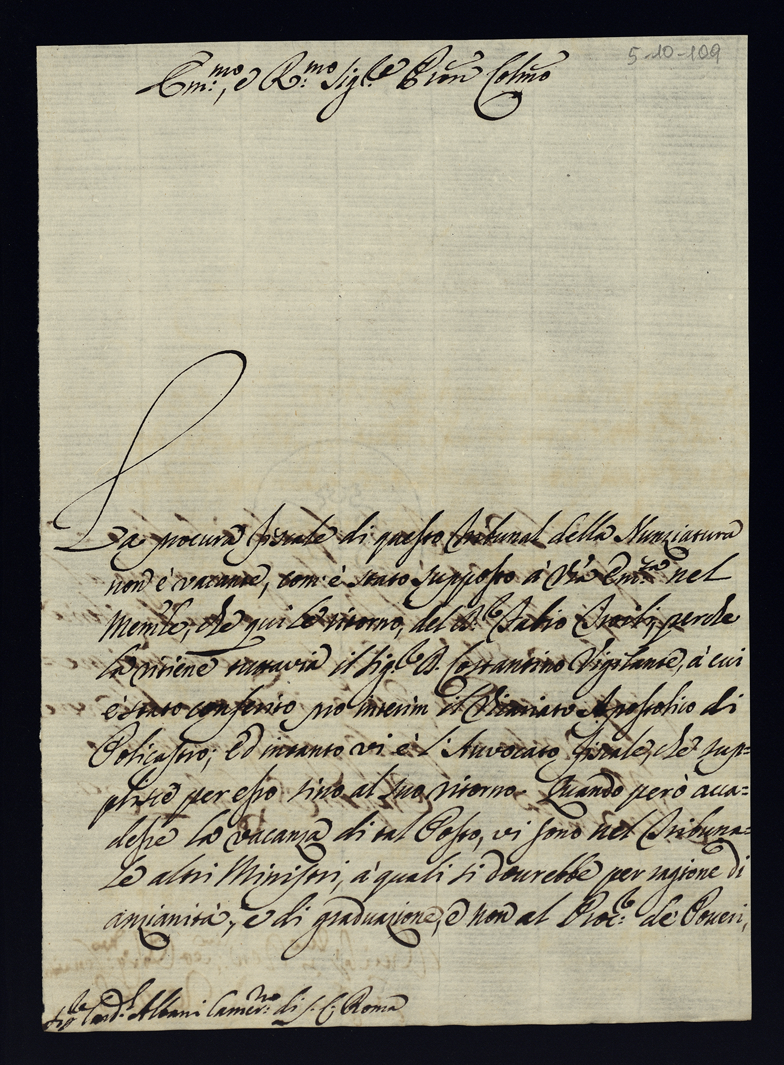 5-10-109
Em.mo, e R.mo Sig.re Pron Colmo
La procura fiscale di questo Tribunal della Nunziatura
non è vacante, com'è stato supposto à V.ra Em.za nel
Mem.le, che qui Le ritorno, del D. Fabio, perche
la ritiene tuttavia il Sig.re D. Costantino Vigilante, à cui
è stato conferito pro interim il Vicariato Apostolico di
Policastro; ed intanto vi è l'Avvocato fiscale, che sup=
plisce per esso sino al suo ritorno. Quando però acca=
desse la vacanza di tal Posto, vi sono nel Tribuna=
le altri Ministri, a' quali si dovrebbe per ragione di
anzianità, e di graduazione, e non al Proc.re de' Poveri,
Sig.re Card.l Albani Camer.go di S. C. Roma